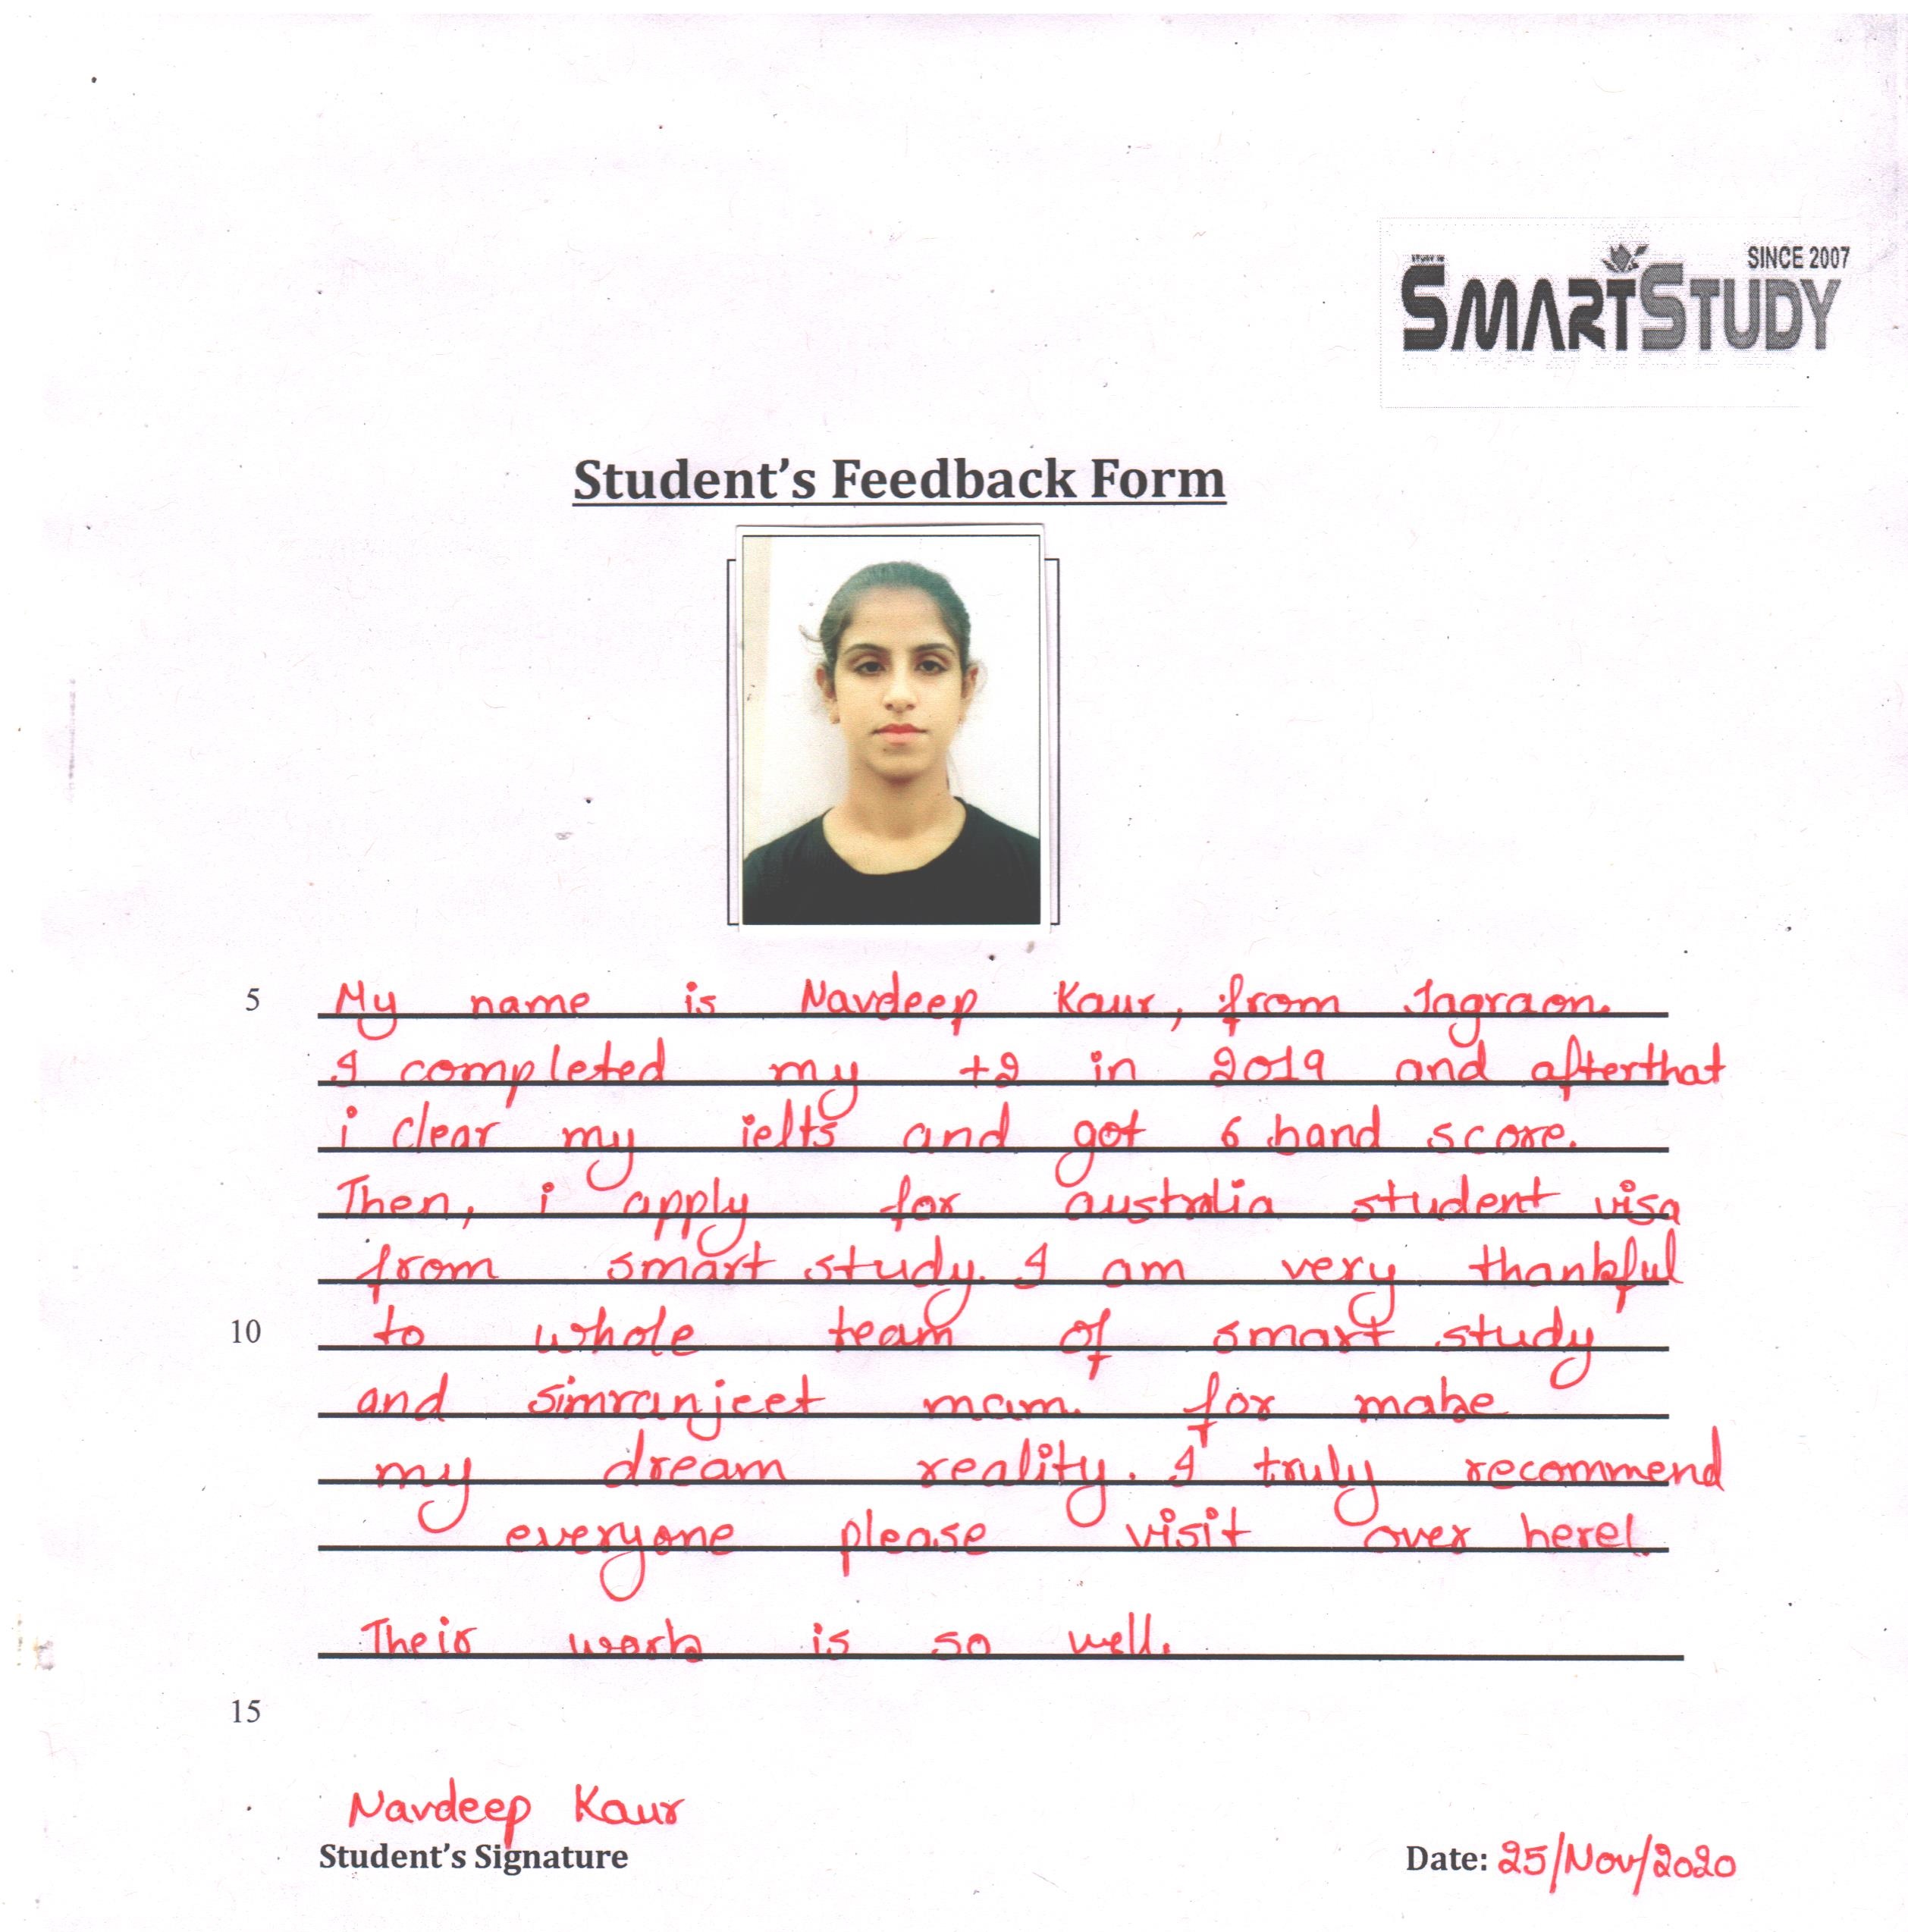 STUDY IN
SINCE 2007
SMARTSTUDY
Student's Feedback Form
5 My name is Navdeep Kaur, from Jagraon.
I completed my +2 in 2019 and afterthat
i clear my ielts and got 6 band score.
Then, i apply for australia student visa
from smart study. I am very thankful
10 to whole team of smart study
and simranjeet mam. for make
my dream reality. I truly recommend
everyone please visit over here!
Their work is so well.
15
Navdeep Kaur
Student's Signature
Date: 25/Nov/2020